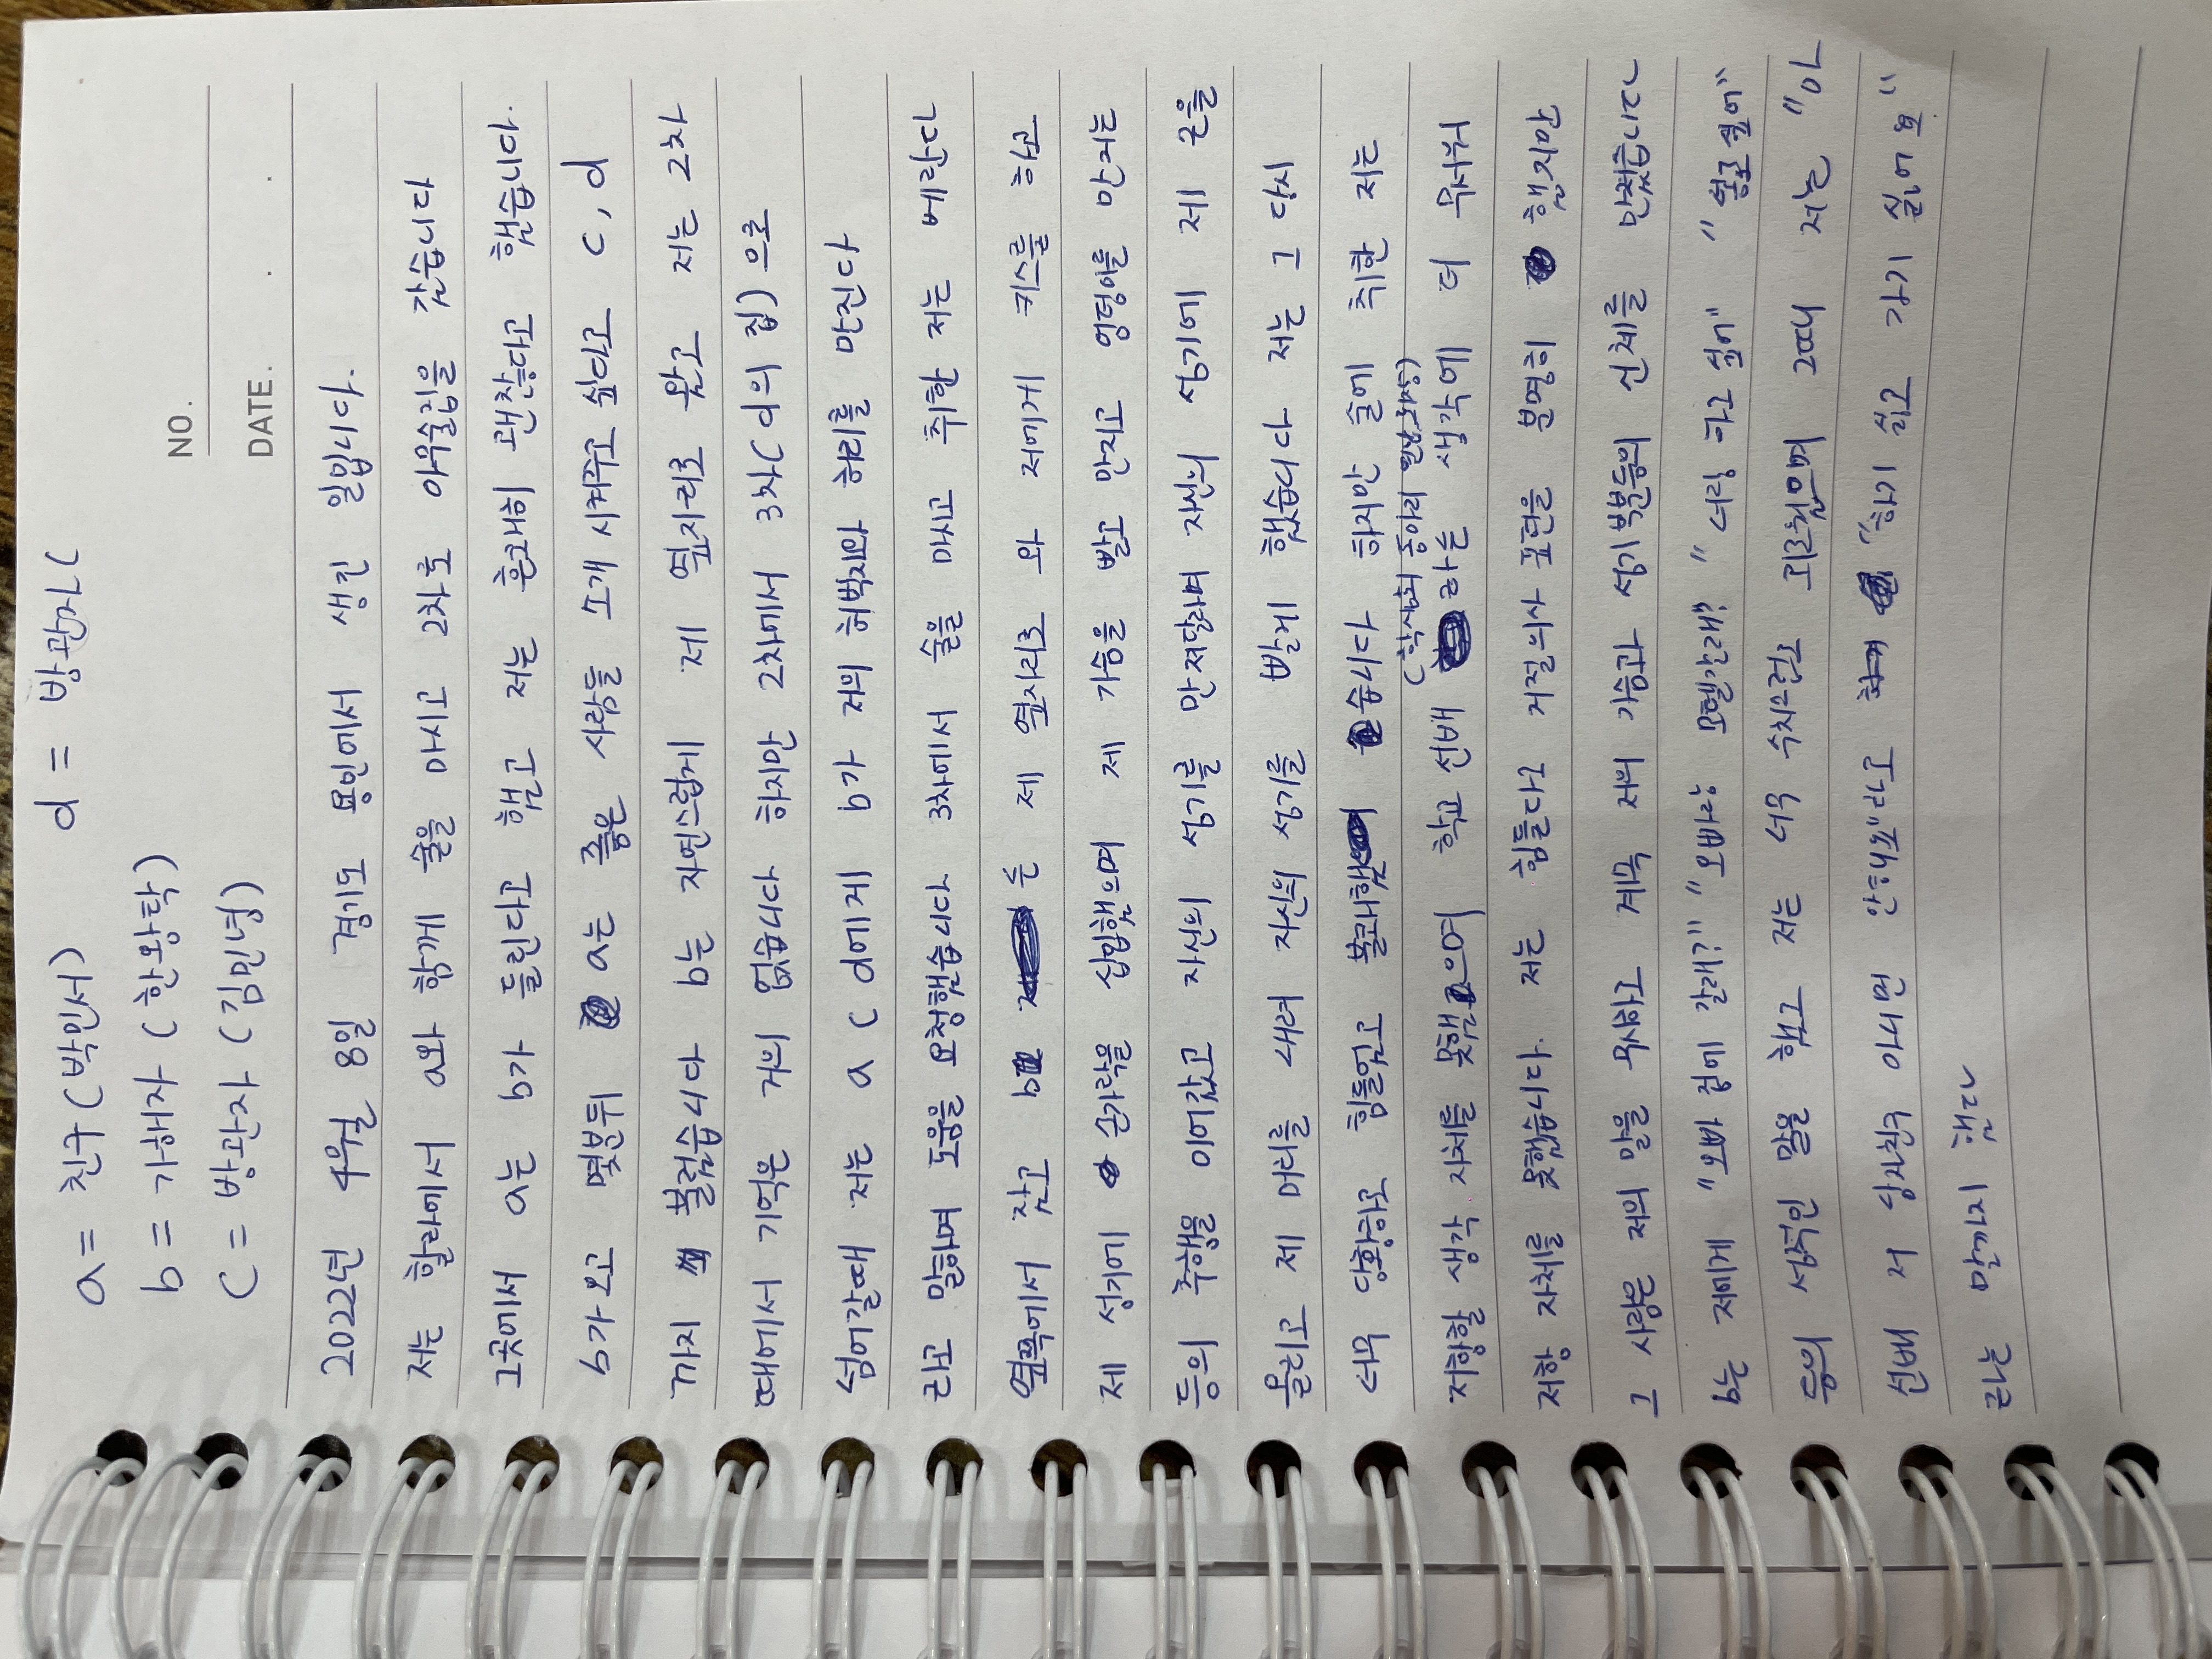 a = 친구 (박인서) d = 방관자 (
b = 가해자 (한왕탁)
C = 방관자 (김민녕)
NO.
DATE. . .
2022년 4월 8일 경기도 용인에서 생긴 일입니다.
저는 할라에서 a와 함께 술을 마시고 2차로 이우술집을 갔습니다
그곳에서 a는 b가 들린다고 했고 저는 흔쾌히 괜찮다고 했습니다.
b가 오고 몇분뒤 a는 좋은 사람들 소개 시켜주고 싶다고 c, d
까지 불렀습니다 b는 자연스럽게 제 옆자리로 왔고 저는 2차
때에서 기억은 거의 없습니다 하지만 2차에서 3차(d의 집)으로
넘어갈때 저는 a c d에게 b가 저의 허벅지와 허리를 만진다
라고 말하며 도움을 요청했습니다 3차에서 술을 마시고 취한 저는 베란다
옆쪽에서 잤고 b는 제 옆자리로 와 저에게 키스를 하고
제 성기에 손가락을 삽입했으며 제 가슴을 빨고 만지고 엉덩이를 만지는
등의 추행을 이어갔고 자신의 성기를 만져달라며 자신의 성기에 제 손을
올리고 제 머리를 내려 자신의 성기를 빨게 했습니다 저는 그 당시
너무 당황하고 힘들었고 불쾌했습니다 하지만 술에 취한 저는
(학생회 동아리 회장)
저항할 생각 자체를 못했으며 학교 선배라는 생각에 더 무서워
저항 자체를 못했습니다. 저는 힘들다고 거절의사 표현을 분명히 했지만
그 사람은 저의 말을 무시하고 계속 저의 가슴과 성기부분등의 신체를 만졌습니다
b는 제게 "오빠 집에 갈래?" "오빠랑 모텔갈래?" "너랑 하고 싶어"
등의 성적인 말을 했고 저는 너무 수치스럽고 괴로웠으며 그때 저는 "아
선배 저 남자친구 아니면 안해요"라고 "하기 싫고 가기 싫어요"
라는 말까지 했다